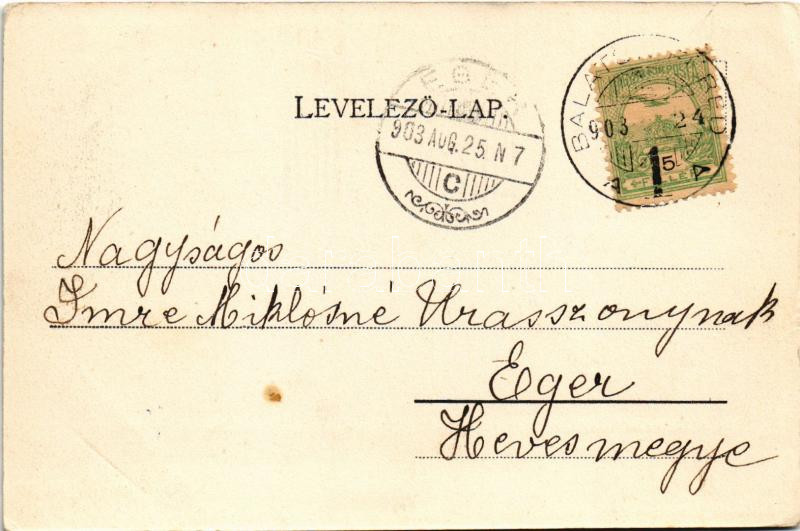 LEVELEZŐ-LAP.
EGER
903 AUG. 25. N 7
C
903
24
5
Nagyságos
Imre Miklósné Urasszonynak
Eger
Hevesmegye